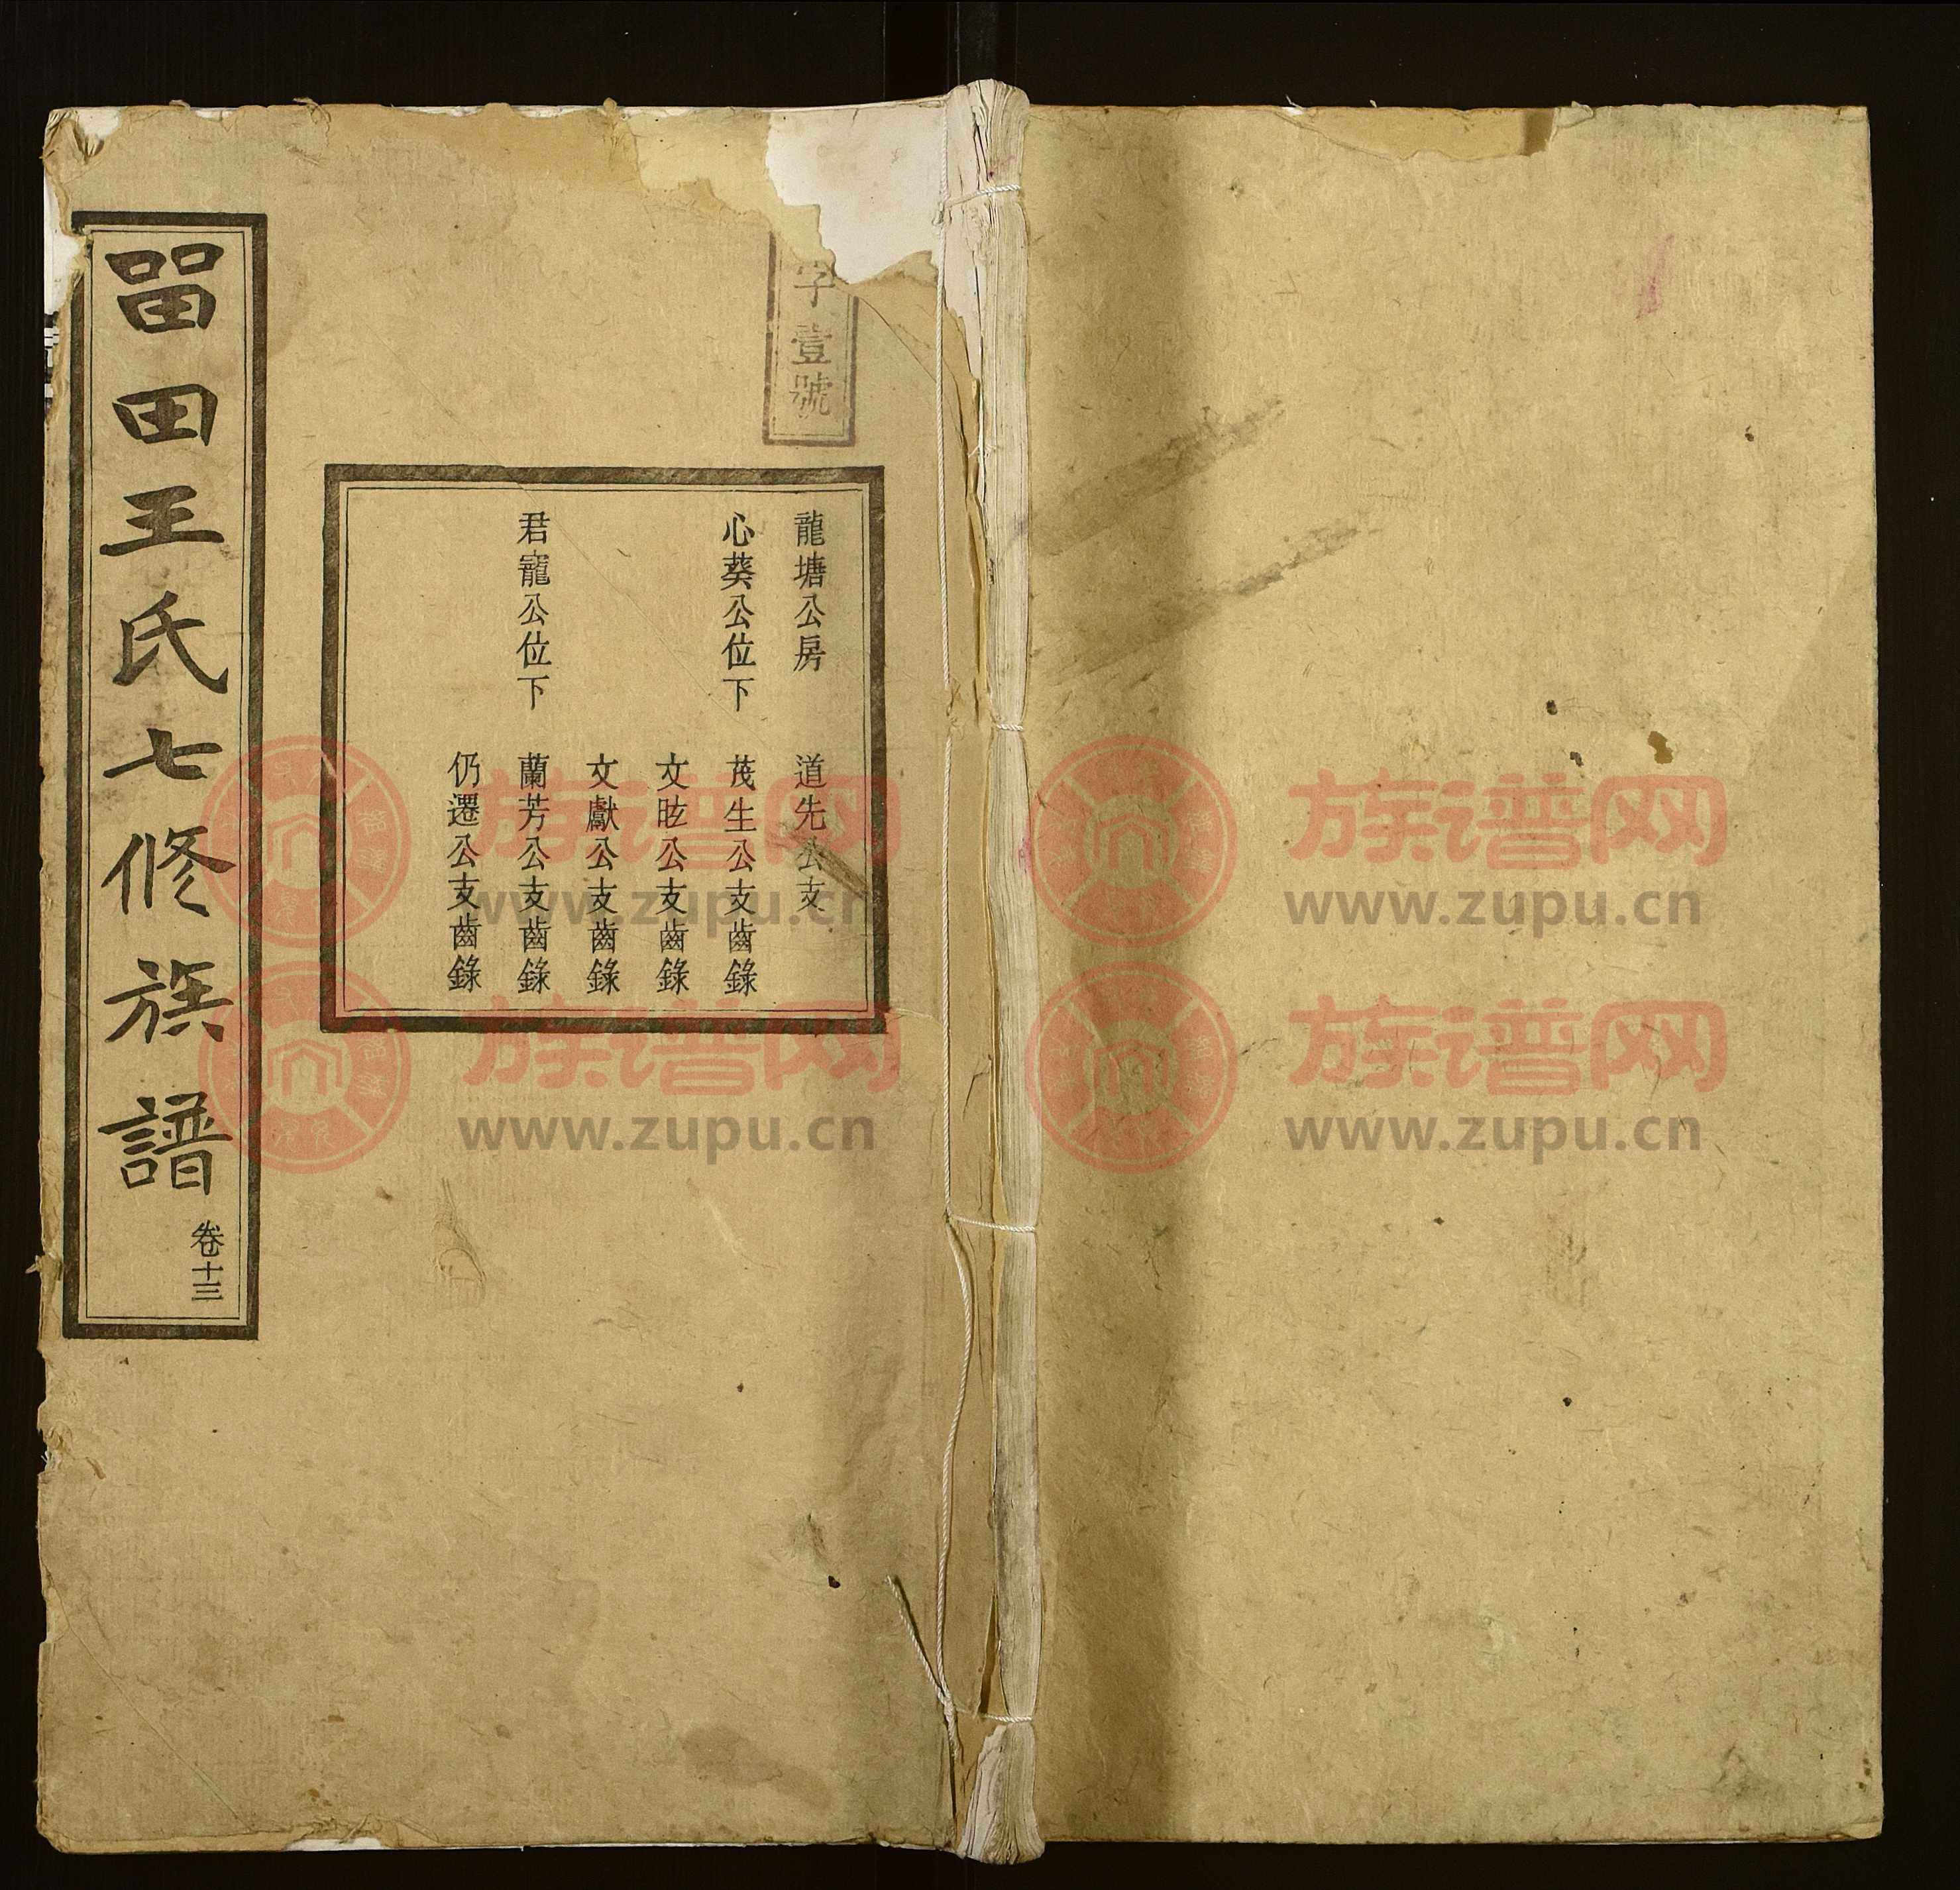 字壹號
龍塘公房 道先公支
心葵公位下 茂生公支齒錄
文昡公支齒錄
文獻公支齒錄
君寵公位下 蘭芳公支齒錄
仍遷公支齒錄
畱田王氏七修族譜 卷十三
族谱网 族谱网
www.zupu.cn www.zupu.cn
族谱网 族谱网
www.zupu.cn www.zupu.cn